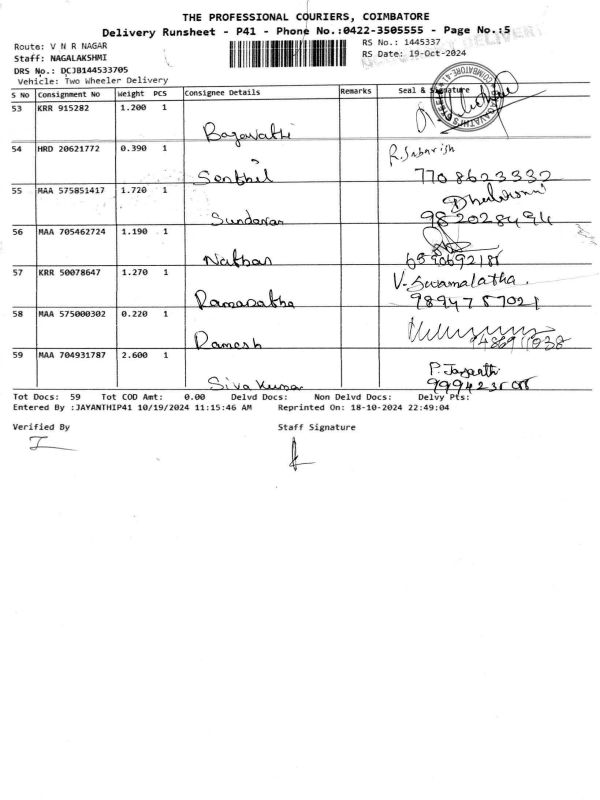 THE PROFESSIONAL COURIERS, COIMBATORE
Delivery Runsheet - P41 - Phone No.:0422-3505555 - Page No.:5
Route: V N R NAGAR RS No.: 1445337
Staff: NAGALAKSHMI RS Date: 19-Oct-2024
DRS No.: DCJB144533705
Vehicle: Two Wheeler Delivery
S No Consignment No Weight PCS Consignee Details Remarks Seal & Signature
53 KRR 915282 1.200 1
Bagavathi
54 HRD 20621772 0.390 1 R. Sabarish
Senthil 7708623332
55 MAA 575851417 1.720 1
Sundaran 9820284494
56 MAA 705462724 1.190 1
Nathan
57 KRR 50078647 1.270 1 V. Swarnalatha.
9894787021
58 MAA 575000302 0.220 1
Ramesh
59 MAA 704931787 2.600 1 P. Jayanthi
Siva Kumar
Tot Docs: 59 Tot COD Amt: 0.00 Delvd Docs: Non Delvd Docs: Delvy Pts:
Entered By :JAYANTHIP41 10/19/2024 11:15:46 AM Reprinted On: 18-10-2024 22:49:04
Verified By Staff Signature